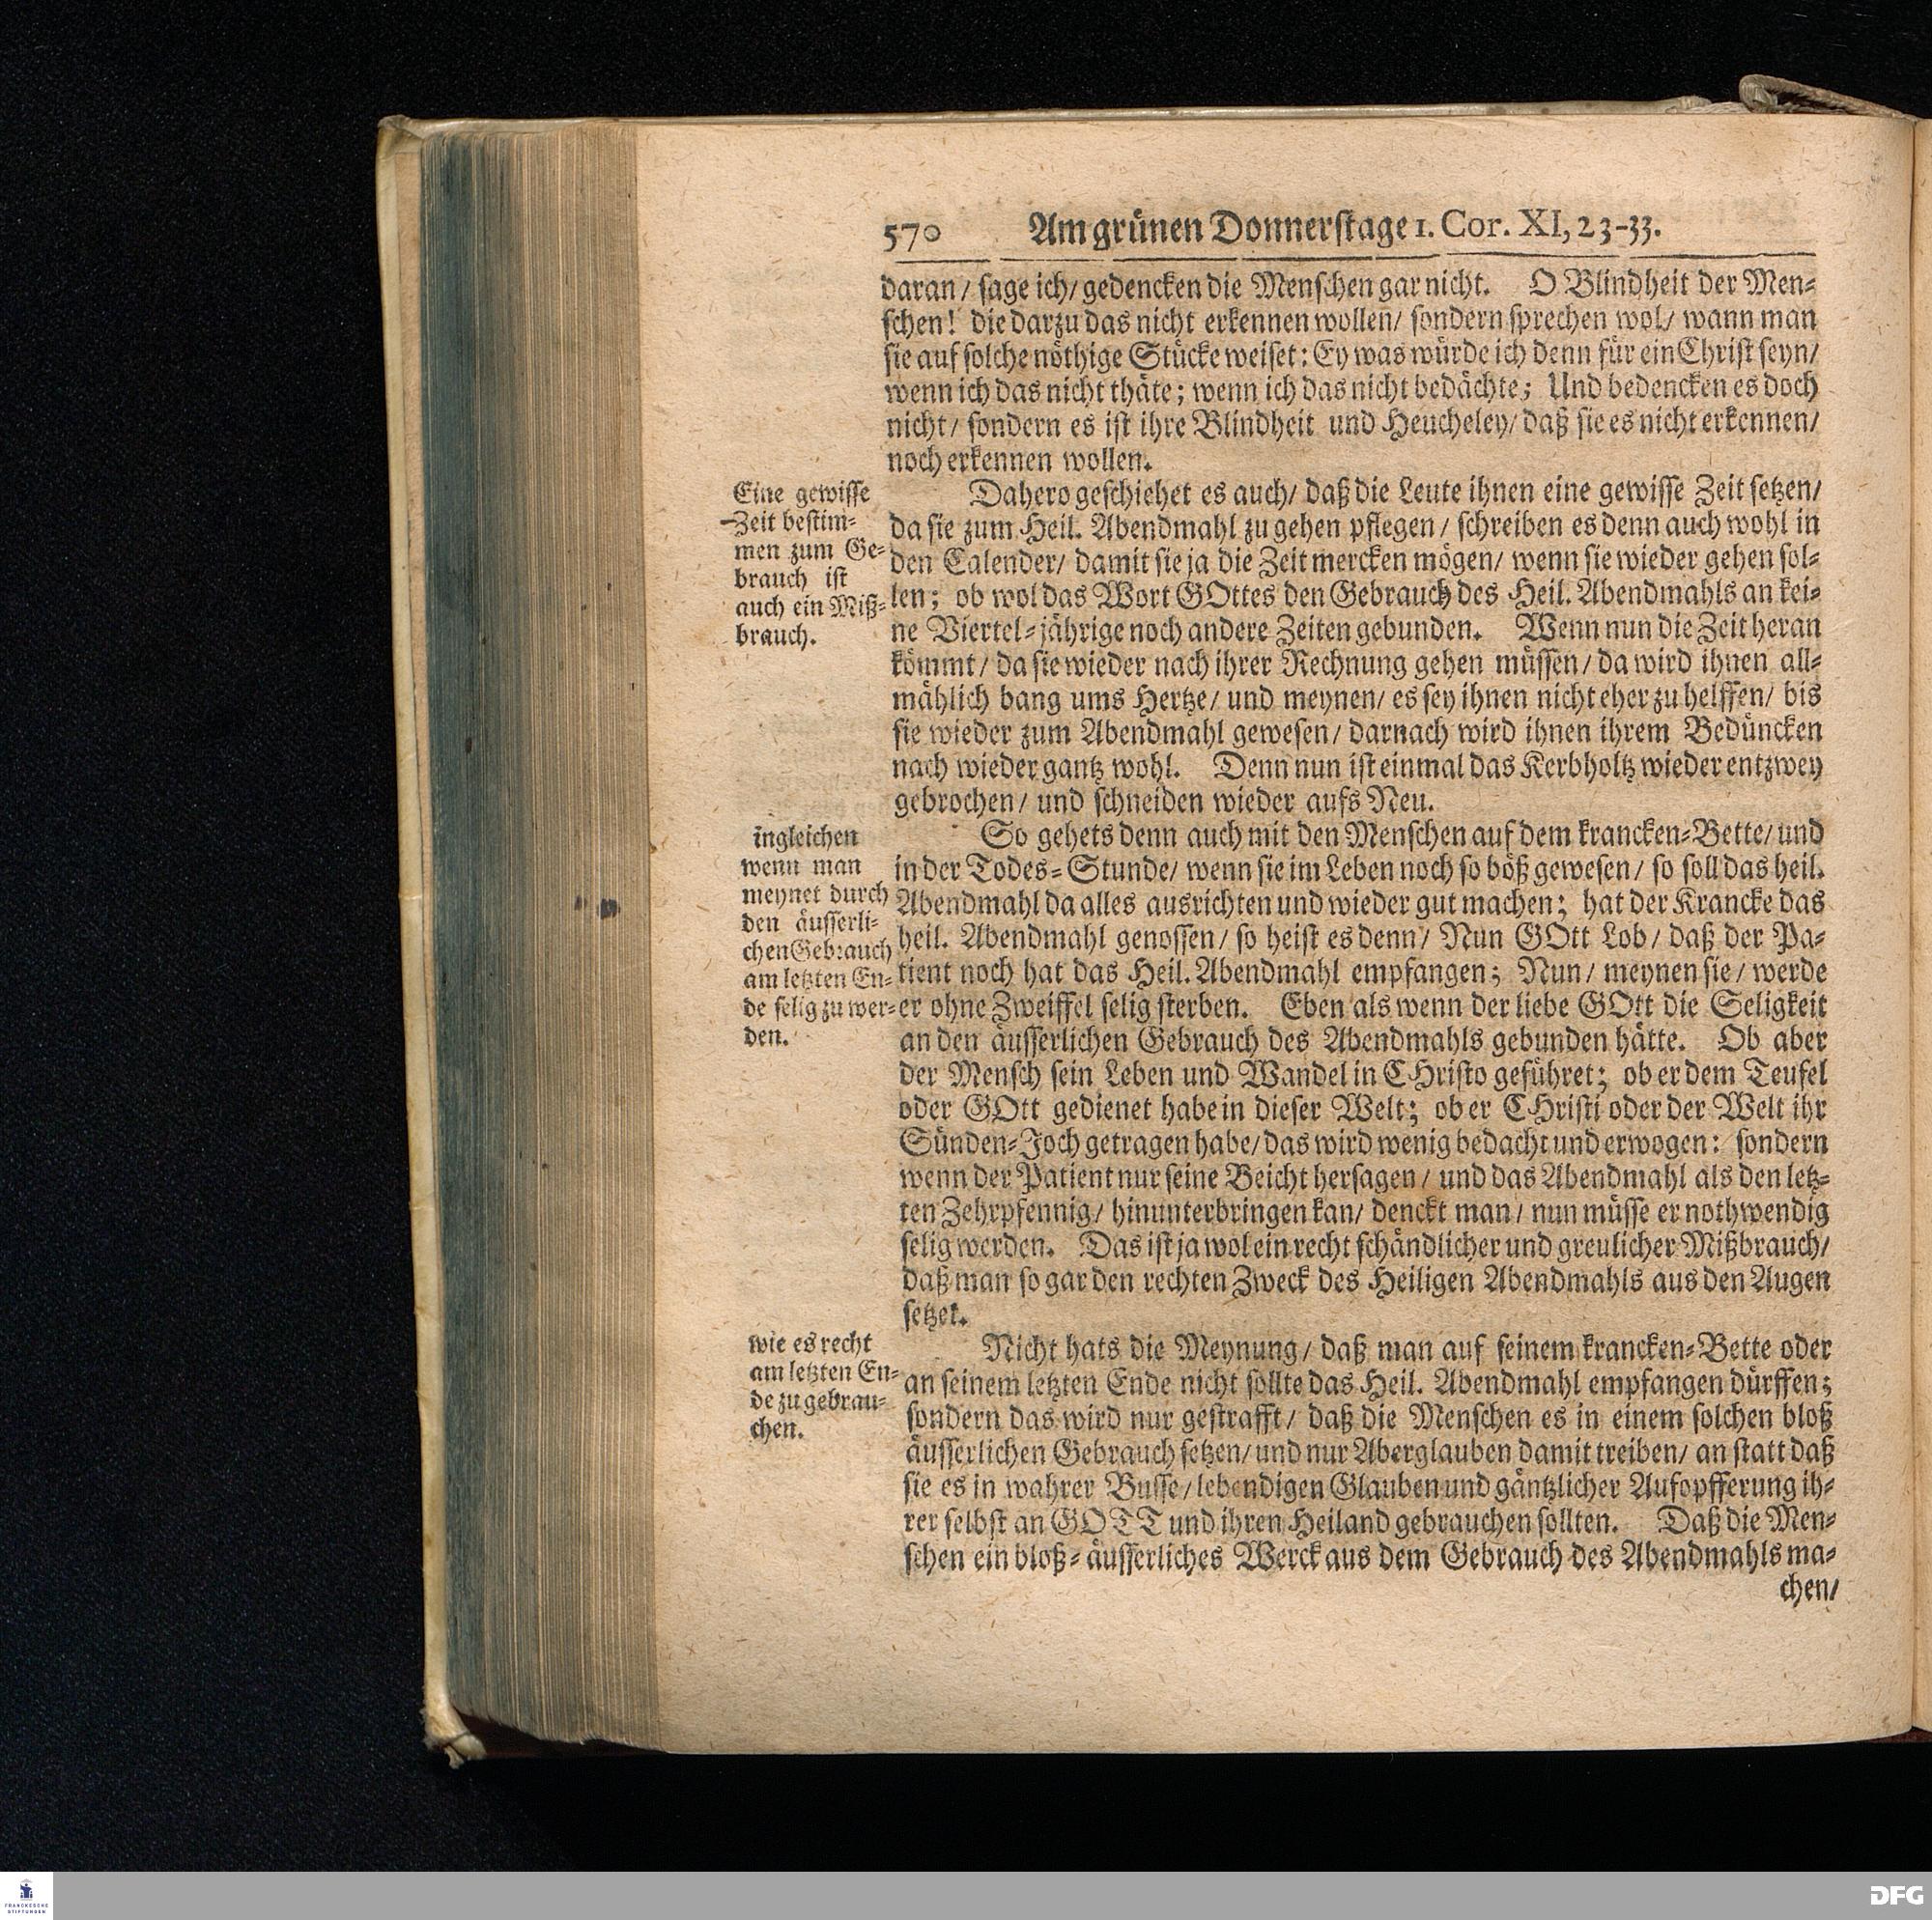 570 Am grünen Donnerstage 1. Cor. XI, 23-33.
daran/ sage ich/ gedencken die Menschen gar nicht. O Blindheit der Men-
schen! die darzu das nicht erkennen wollen/ sondern sprechen wol/ wann man
sie auf solche nöthige Stücke weiset: Ey was würde ich denn für ein Christ seyn/
wenn ich das nicht thäte; wenn ich das nicht bedächte; Und bedencken es doch
nicht/ sondern es ist ihre Blindheit und Heucheley/ daß sie es nicht erkennen/
noch erkennen wollen.
Eine gewisse
Zeit bestim-
men zum Ge-
brauch ist
auch ein Miß-
brauch.
Dahero geschiehet es auch/ daß die Leute ihnen eine gewisse Zeit setzen/
da sie zum Heil. Abendmahl zu gehen pflegen/ schreiben es denn auch wohl in
den Calender/ damit sie ja die Zeit mercken mögen/ wenn sie wieder gehen sol-
len; ob wol das Wort GOttes den Gebrauch des Heil. Abendmahls an kei-
ne Viertel-jährige noch andere Zeiten gebunden. Wenn nun die Zeit heran
kömmt/ da sie wieder nach ihrer Rechnung gehen müssen/ da wird ihnen all-
mählich bang ums Hertze/ und meynen/ es sey ihnen nicht eher zu helffen/ bis
sie wieder zum Abendmahl gewesen/ darnach wird ihnen ihrem Bedüncken
nach wieder gantz wohl. Denn nun ist einmal das Kerbholtz wieder entzwey
gebrochen/ und schneiden wieder aufs Neu.
ingleichen
wenn man
meynet durch
den äusserli-
chen Gebrauch
am letzten En-
de selig zu wer-
den.
So gehets denn auch mit den Menschen auf dem krancken-Bette/ und
in der Todes-Stunde/ wenn sie im Leben noch so böß gewesen/ so soll das heil.
Abendmahl da alles ausrichten und wieder gut machen; hat der Krancke das
heil. Abendmahl genossen/ so heist es denn/ Nun GOtt Lob/ daß der Pa-
tient noch hat das Heil. Abendmahl empfangen; Nun/ meynen sie/ werde
er ohne Zweiffel selig sterben. Eben als wenn der liebe GOtt die Seligkeit
an den äusserlichen Gebrauch des Abendmahls gebunden hätte. Ob aber
der Mensch sein Leben und Wandel in CHristo geführet; ob er dem Teufel
oder GOtt gedienet habe in dieser Welt; ob er CHristi oder der Welt ihr
Sünden-Joch getragen habe/ das wird wenig bedacht und erwogen: sondern
wenn der Patient nur seine Beicht hersagen/ und das Abendmahl als den letz-
ten Zehrpfennig/ hinunterbringen kan/ denckt man/ nun müsse er nothwendig
selig werden. Das ist ja wol ein recht schändlicher und greulicher Mißbrauch/
daß man so gar den rechten Zweck des Heiligen Abendmahls aus den Augen
setzet.
wie es recht
am letzten En-
de zu gebrau-
chen.
Nicht hats die Meynung/ daß man auf seinem krancken-Bette oder
an seinem letzten Ende nicht sollte das Heil. Abendmahl empfangen dürffen;
sondern das wird nur gestrafft/ daß die Menschen es in einem solchen bloß
äusserlichen Gebrauch setzen/ und nur Aberglauben damit treiben/ an statt daß
sie es in wahrer Busse/ lebendigen Glauben und gäntzlicher Aufopfferung ih-
rer selbst an GOTT und ihren Heiland gebrauchen sollten. Daß die Men-
schen ein bloß-äusserliches Werck aus dem Gebrauch des Abendmahls ma-
chen/
FRANCKESCHE
STIFTUNGEN
DFG